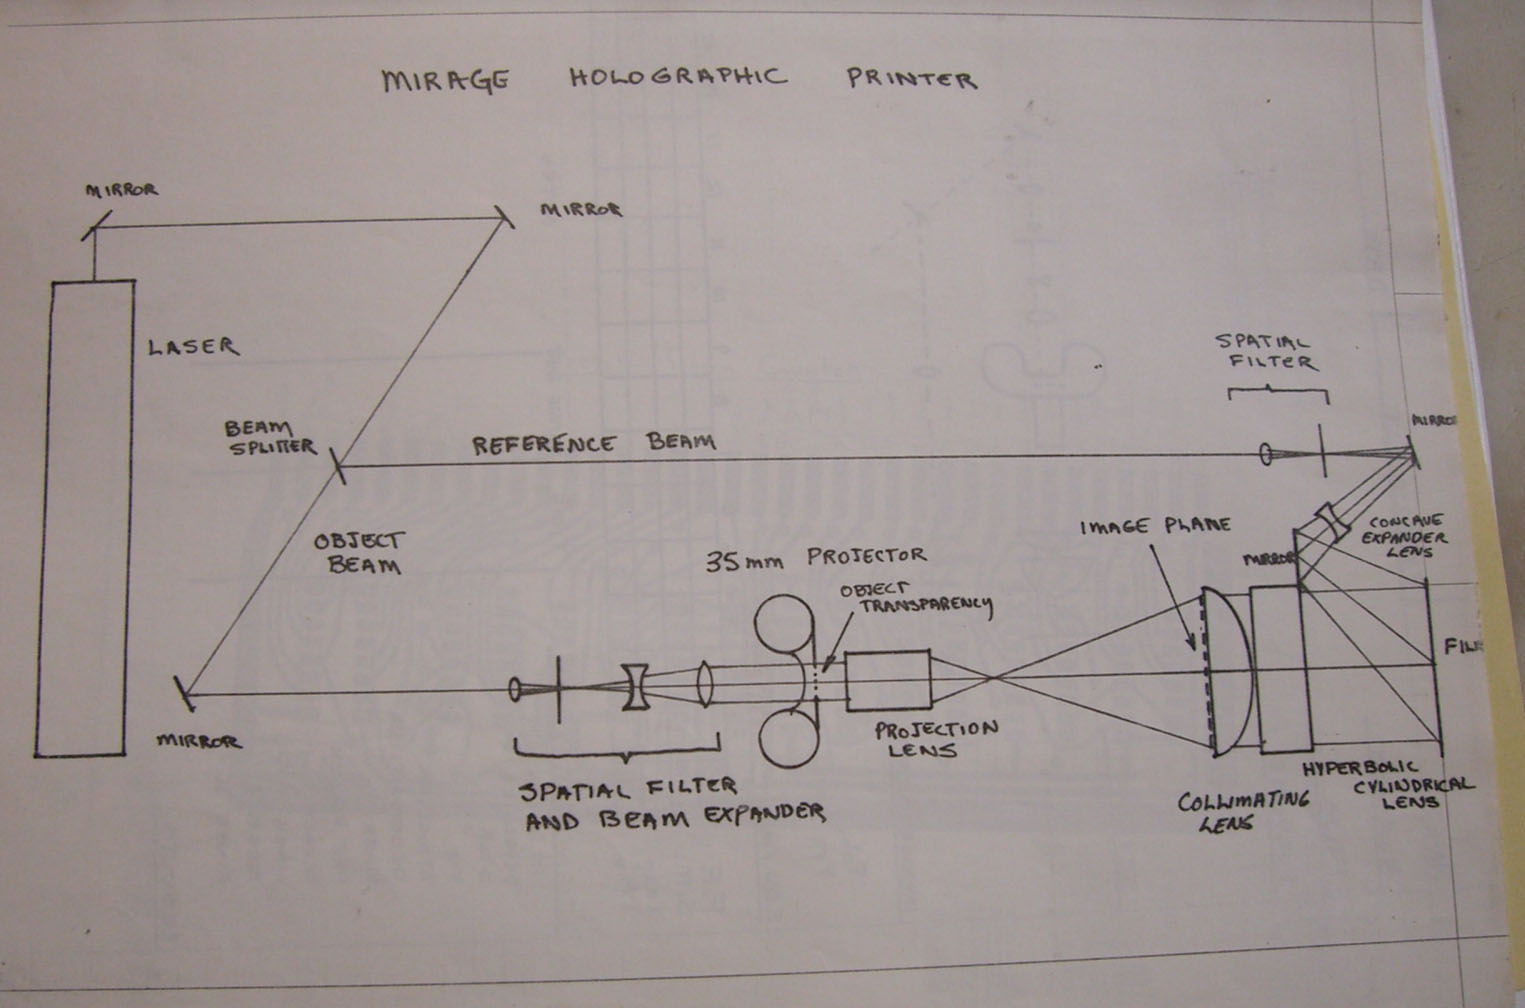 MIRAGE HOLOGRAPHIC PRINTER
MIRROR
MIRROR
LASER
SPATIAL
FILTER
BEAM
SPLITTER
REFERENCE BEAM
MIRRO
OBJECT
BEAM
IMAGE PLANE
CONCAVE
EXPANDER
LENS
MIRROR
35mm PROJECTOR
OBJECT
TRANSPARENCY
FIL
MIRROR
PROJECTION
LENS
SPATIAL FILTER
AND BEAM EXPANDER
COLLIMATING
LENS
HYPERBOLIC
CYLINDRICAL
LENS